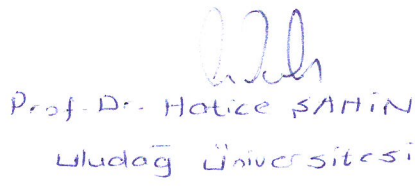 Prof. Dr. Hatice ŞAHİN
Uludağ Üniversitesi